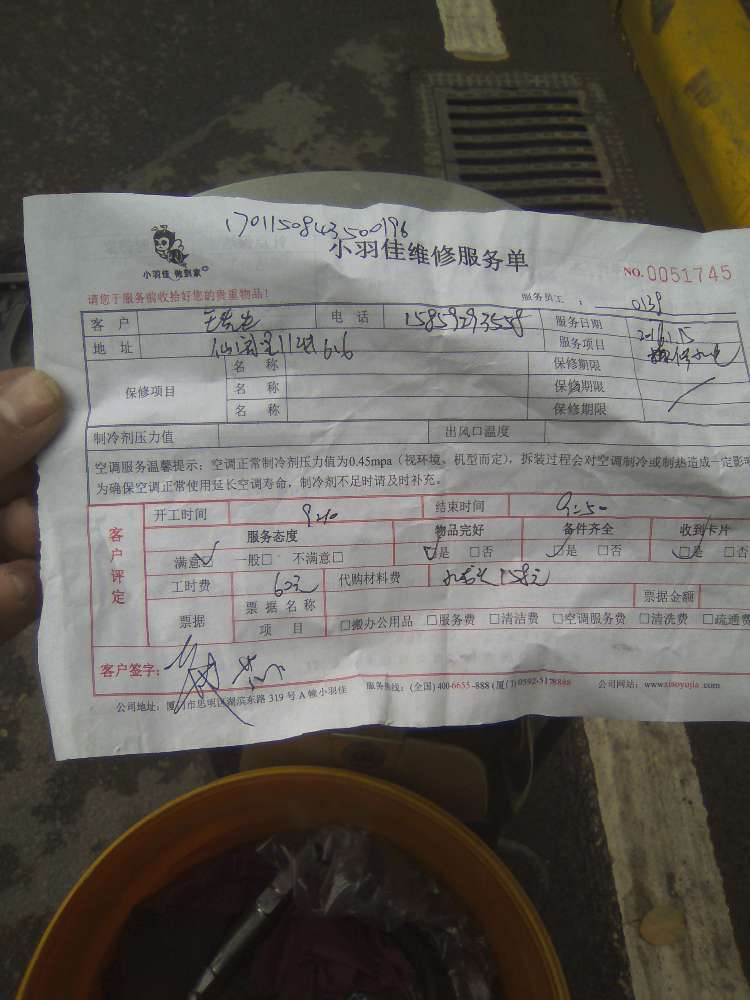 170115084353500196
小羽佳维修服务单
小羽佳 做到家
NO.0051745
请您于服务前收拾好您的贵重物品!
服务员工: 0139
客户 电话 15859293559 服务日期
地址 服务项目
保修项目 名称 保修期限
名称 保修期限
名称 保修期限
制冷剂压力值 出风口温度
空调服务温馨提示:空调正常制冷剂压力值为0.45mpa(视环境、机型而定),拆装过程会对空调制冷或制热造成一定影
为确保空调正常使用延长空调寿命,制冷剂不足时请及时补充。
客户评定
开工时间 9:20 结束时间 9:50
服务态度 物品完好 备件齐全 收到卡片
满意□ 一般□ 不满意□ □是 □否 □是 □否 □是 □否
工时费 60元 代购材料费 水龙头158元
票据 票据名称 票据金额
项目 □搬办公用品 □服务费 □清洁费 □空调服务费 □清洗费 □疏通费
客户签字:
公司地址:厦门市思明区湖滨东路319号A幢小羽佳 服务热线:(全国)400-6655-888(厦门)0592-5178888 公司网站:www.xiaoyujia.com